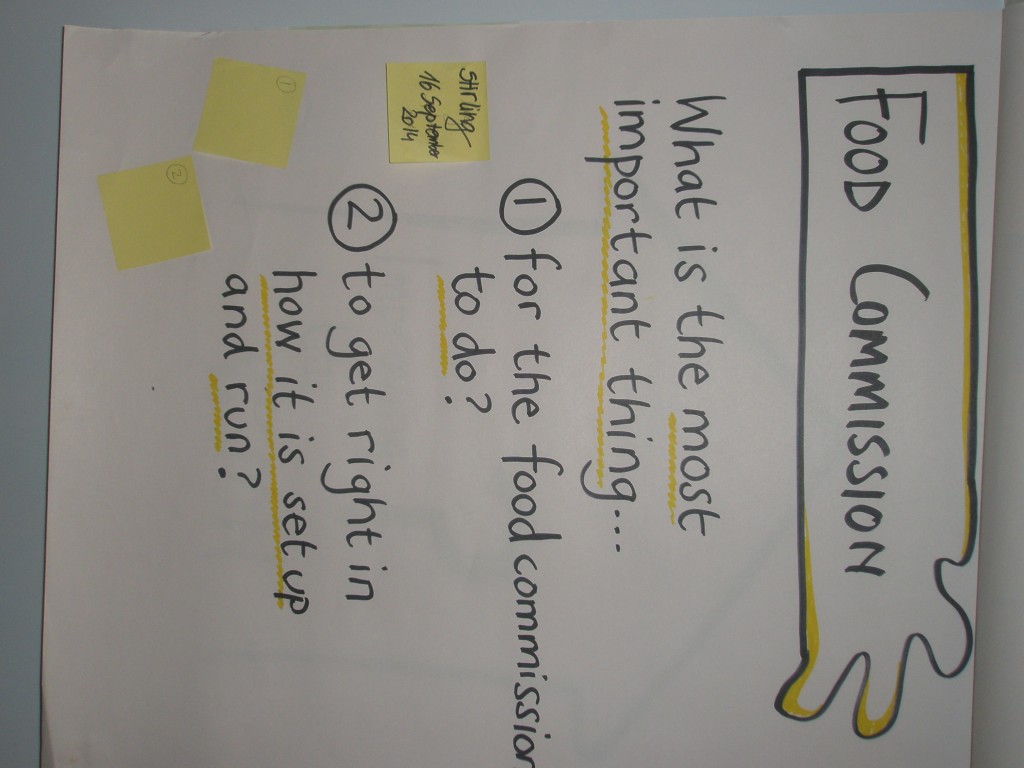 FOOD COMMISSION
What is the most
important thing...
① for the food commission
to do?
② to get right in
how it is set up
and run?
Stirling
16 September
2014
①
②